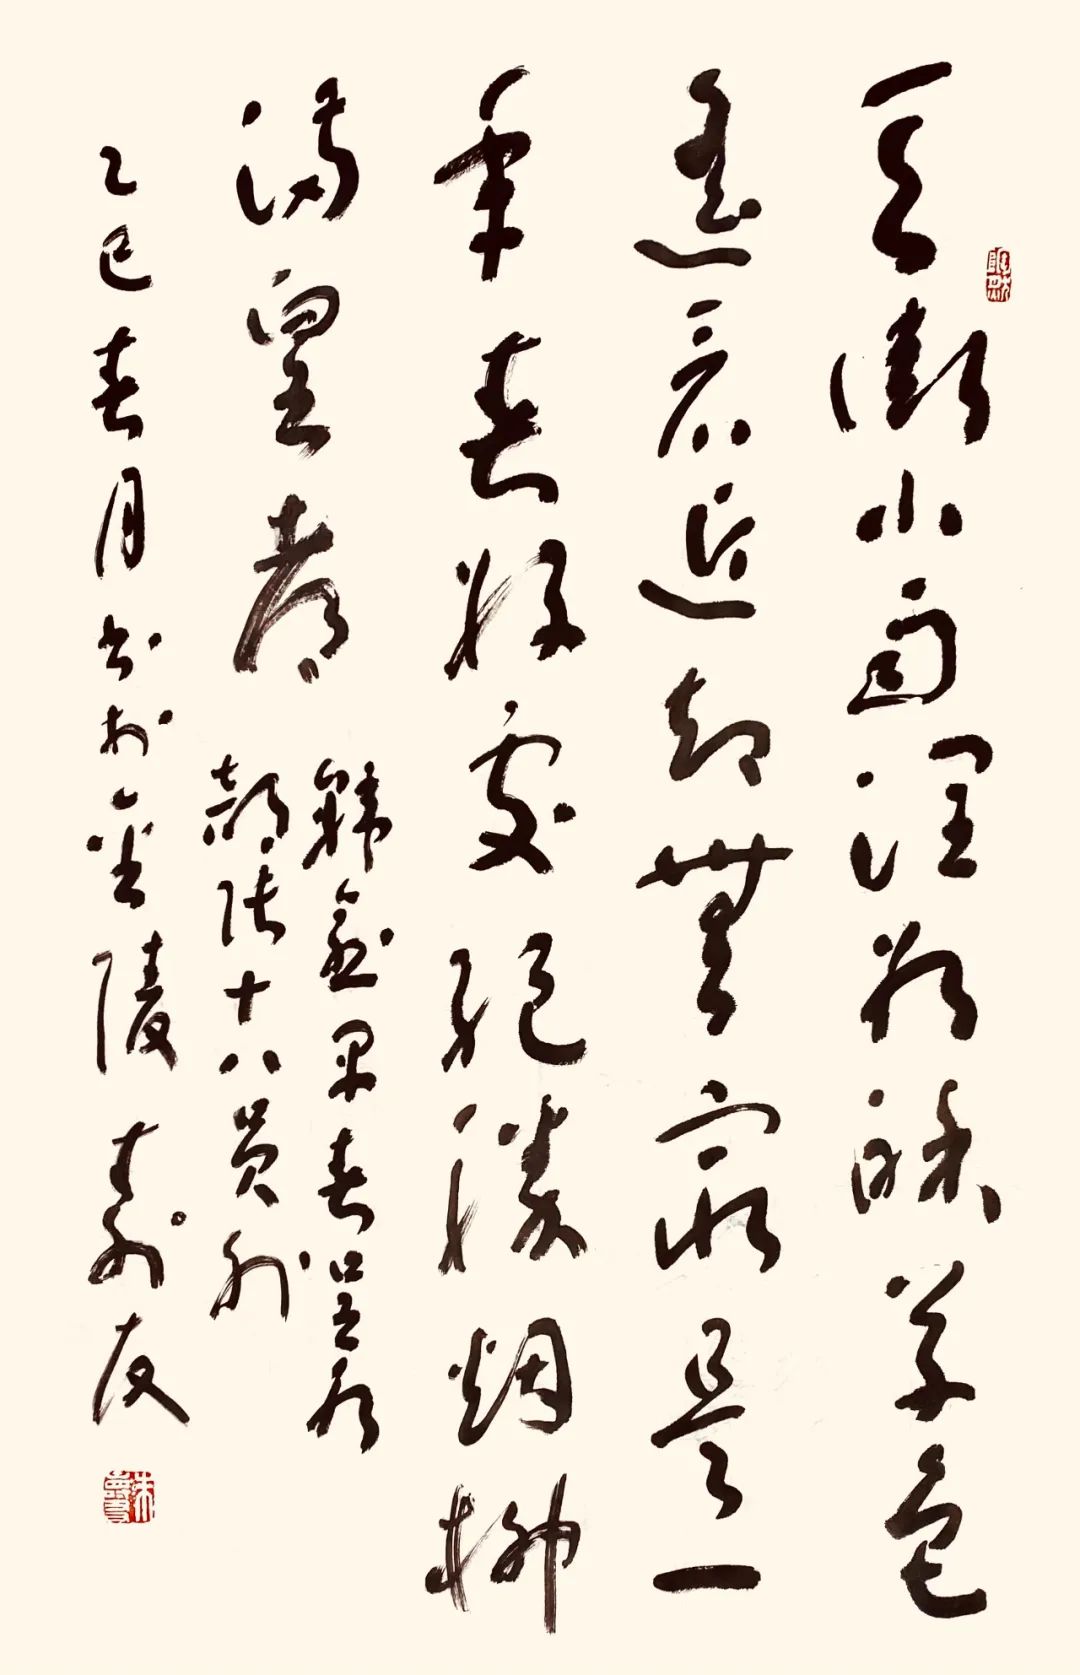 天街小雨润如酥草色
遥看近却無最是一
年春好處绝勝烟柳
满皇都
韩愈早春呈水
部张十八员外
乙巳春月书於金陵寿友